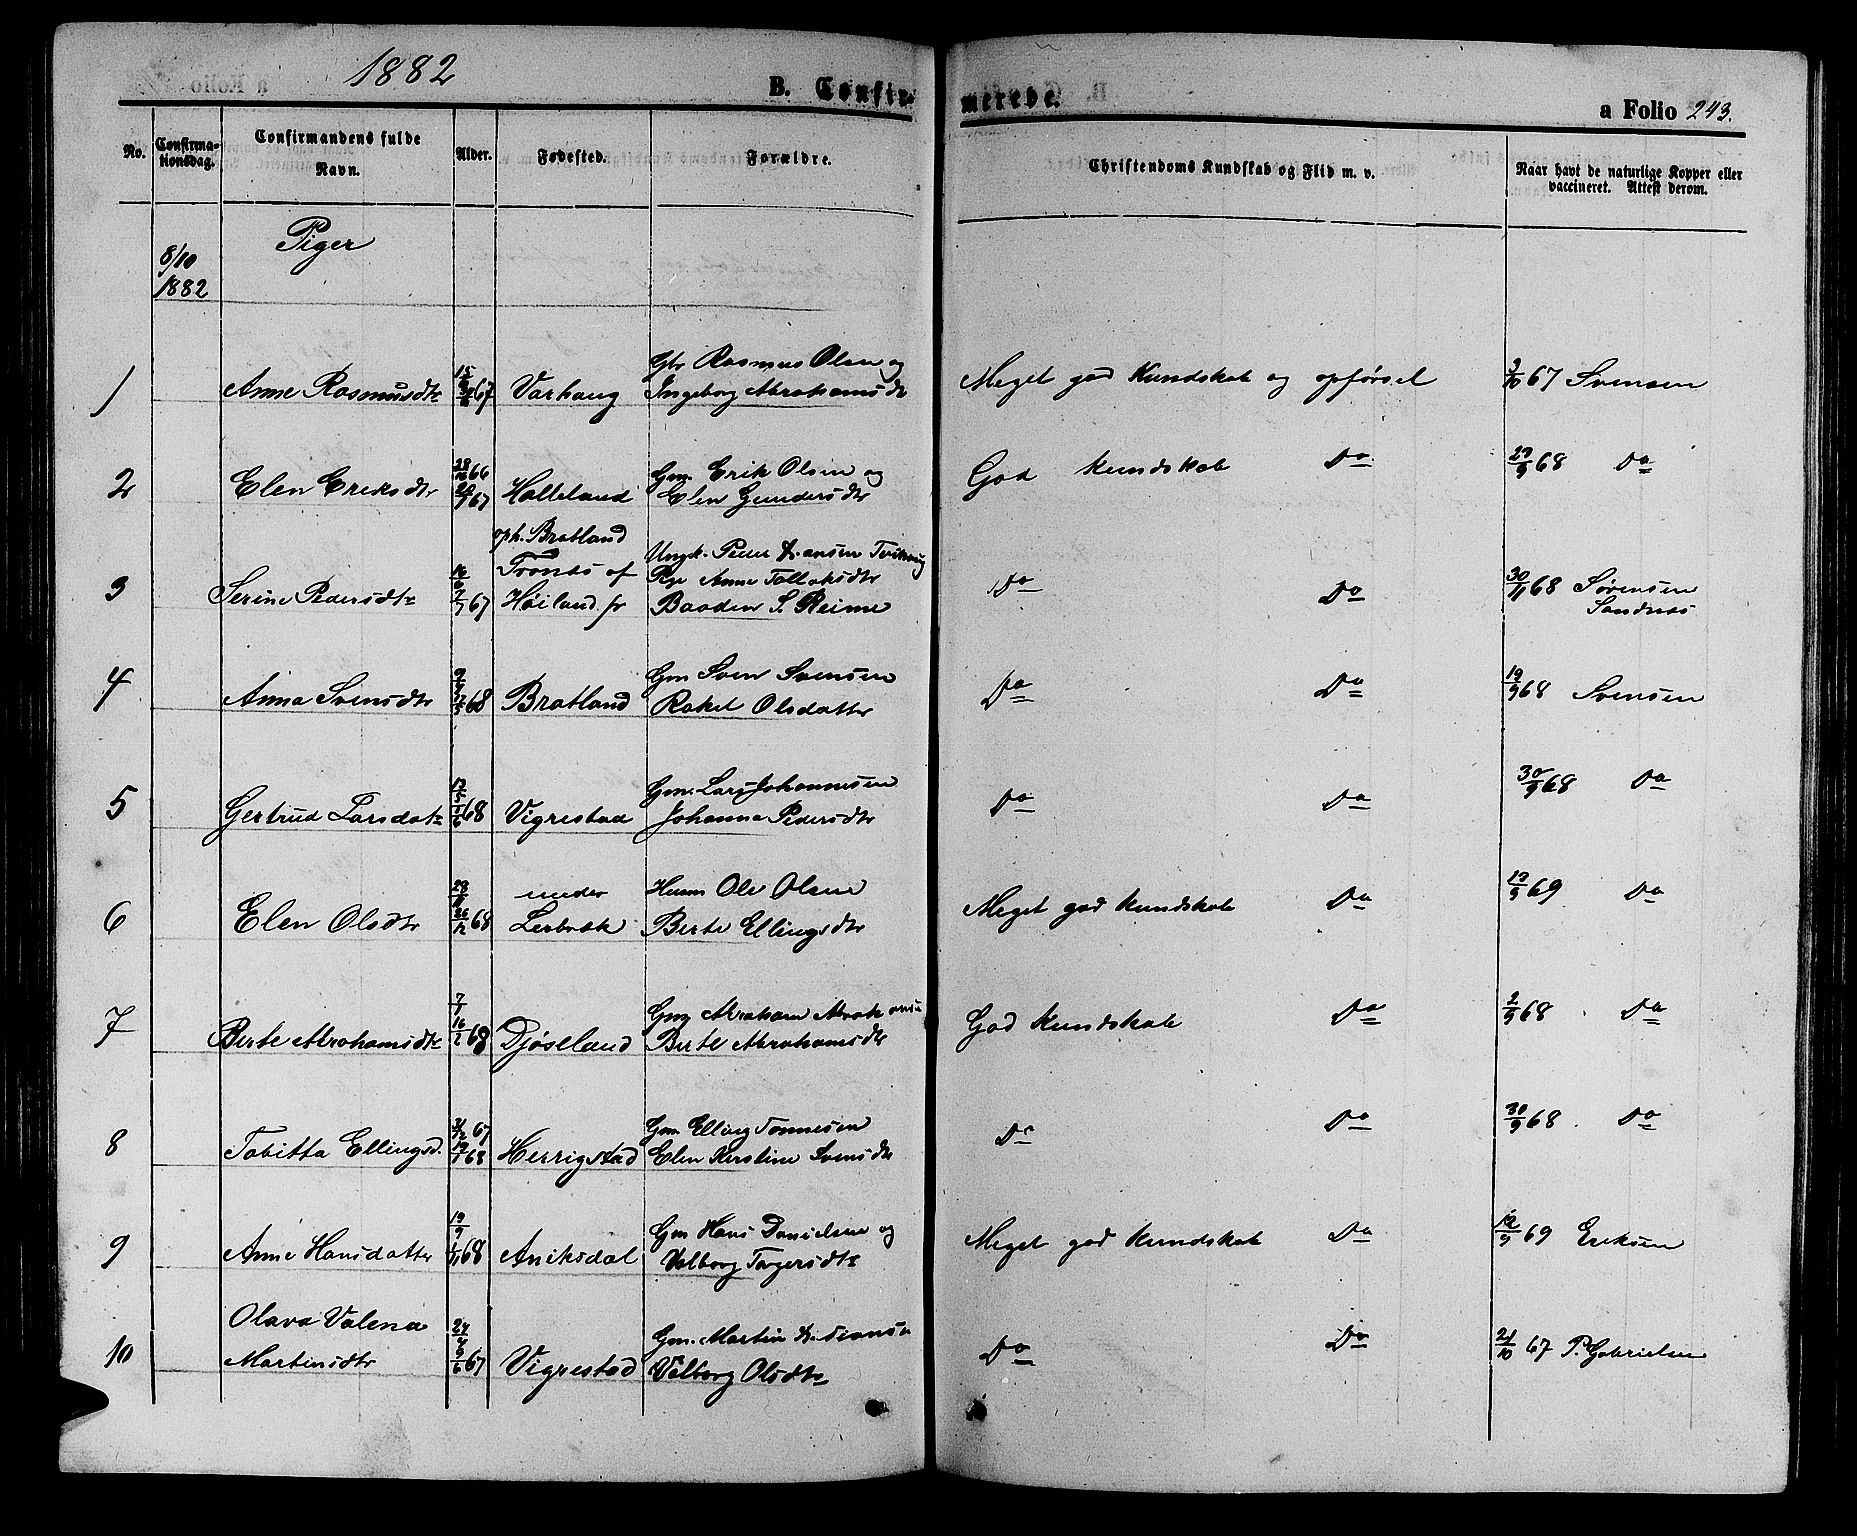 1882
B. Confirmerede.
a Folio 243.
No.
Confirmationsdag.
Confirmandens fulde Navn.
Alder.
Fødested.
Forældre.
Christendoms Kundskab og Flid m. v.
Naar havt de naturlige Kopper eller vaccineret. Attest derom.
8/10 1882
Piger
1 Anne Rasmusdtr 67 Varhaug Gbr Rasmus Olsen og Ingeborg Abrahamsdtr Meget god Kundskab og opførsel 3/10 67 Svensen
2 Elen Eriksdtr 66 67 Halleland Gm. Erik Olsen og Elen Gundersdtr God Kundskab Do 68 Do
3 Serine Pedersdtr 67 oph. Bratland Tronæs af Høiland. fr Ungk. Peder Pige Anne Tollaksdtr Baaden S. Reime Do Do 30/11 68 Sørensen Sandnæs
4 Anna Svensdtr 68 Bratland Gm Sven Svensen Rakel Olsdatter Do Do 19/9 68 Svensen
5 Gertrud Larsdatr 68 Vigrestad Gm. Lars Johannesen Johanna Pedersdtr Do Do 30/9 68 Do
6 Elen Olsdtr 68 under Lerbræk Husm Ole Olsen Berte Ellingsdtr Meget god kundskab Do 69 Do
7 Berte Abrahamsdtr 7/1 16/2 68 Djøseland Gm Abraham Abrahamsen Berte Abrahamsdtr God Kundskab Do 2/9 68 Do
8 Tobitta Ellingsd. 67 68 Herrigstad Gm Elling Tønnesen Elen Kerstine Svensdtr Do Do 30/9 68 Do
9 Anne Hansdatter 68 Aniksdal Gm Hans Danielsen og Valborg Torgersdtr Meget god kundskab Do 12/9 69 Eriksen
10 Olava Valena Martinsdtr 67 Vigrestad Gm. Martin Valborg Olsdtr Do Do 21/10 67 P. Gabrielsen